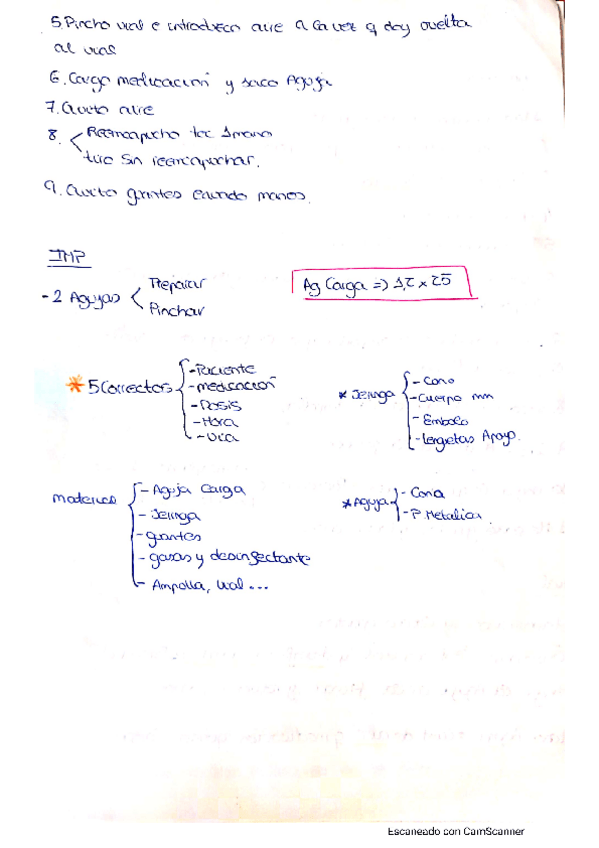 5. Pincho vial e introduzco aire a la vez q doy vuelta
al vial
6. Cargo medicación y saco Aguja
7. Quito aire
8. Reencapucho tec 1 mano
tiro sin reencapuchar.
9. Quito guantes Lavado manos.
IMP
- 2 Agujas
Preparar
Pinchar
Ag Carga => 1,2 x 25
* 5 Correctos
- Paciente
- medicación
- Dosis
- Hora
- Vía
* Jeringa
- Cono
- Cuerpo mm
- Embolo
- Lengüetas Apoyo.
materiales
- Aguja Carga
- Jeringa
- guantes
- gasas y desinfectante
- Ampolla, vial...
* Aguja
- Cono
- P Metalica
Escaneado con CamScanner